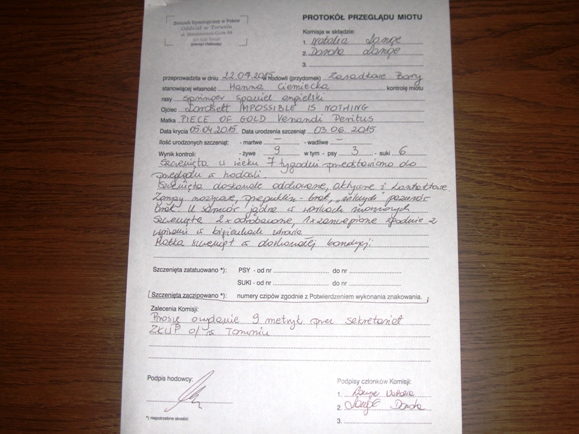 Związek Kynologiczny w Polsce
Oddział w Toruniu
(pieczęć Oddziału)
PROTOKÓŁ PRZEGLĄDU MIOTU
Komisja w składzie:
1. Natalia Lange
2. Dorota Lange
3.
przeprowadzita w dniu 22.07.2015 w hodowli (przydomek) Zasadkowe Bory
stanowiącej własność Hanna Ciemiecka kontrolę miotu
rasy springer spaniel angielski
Ojciec Dorchett IMPOSSIBLE IS NOTHING
Matka PIECE OF GOLD Venandi Peritus
Data krycia 05.04.2015 Data urodzenia szczeniąt 03.06.2015
Ilość urodzonych szczeniąt: - martwe — - wadliwe —
Wynik kontroli: - żywe 9 w tym - psy 3 - suki 6
Szczenięta w wieku 7 tygodni przedstawiono do
przeglądu w hodowli.
Szczenięta doskonale odchowane, aktywne i kontaktowe.
Zgryzy nożycowe, przepuklin - brak, „wilczych" pazurów
brak. U samców jądra w workach mosznowych
Szczenięta 2x odrobaczone, 1x szczepione zgodnie z
wpisami w książeczkach zdrowia
Matka szczeniąt w doskonałej kondycji.
Szczenięta zatatuowano *): PSY - od nr do nr
SUKI - od nr do nr
Szczenięta zaczipowano *): numery czipów zgodnie z Potwierdzeniem wykonania znakowania.
Zalecenia Komisji:
Proszę o wydanie 9 metryk przez sekretariat
ZKwP o/ w Toruniu
Podpis hodowcy:
Podpisy członków Komisji:
1. Lange Natalia
2. Lange Dorota
3.
*) niepotrzebne skreślić